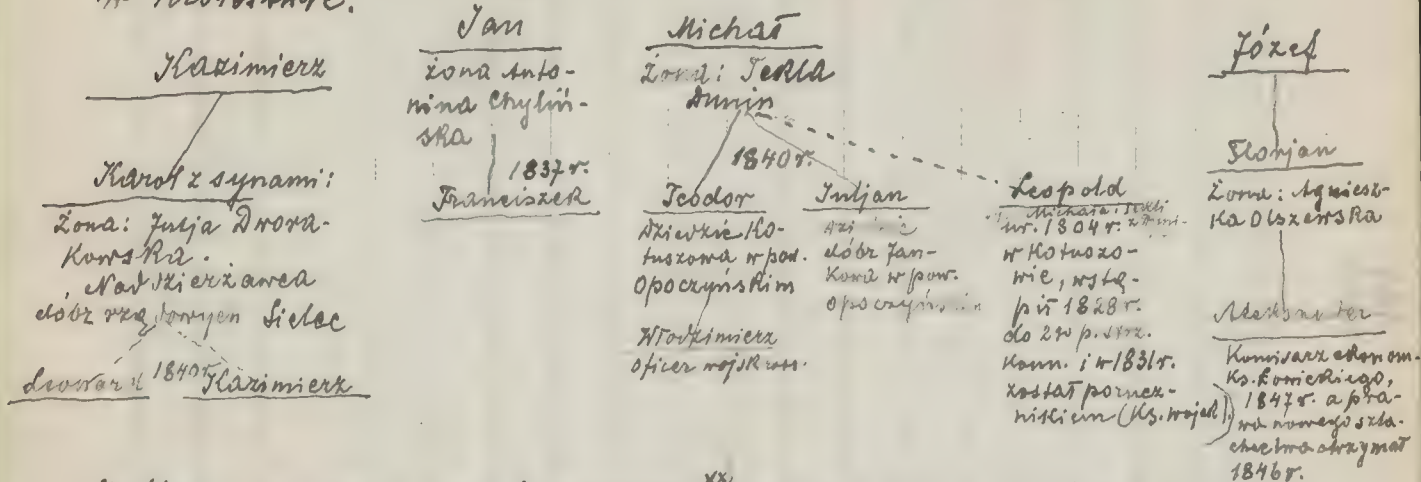 Kazimierz
Karol z synami:
Żona: Julja Dwora-
kowska.
Naddzierżawca
dóbr rządowych Sielec
1840 r.
Kazimierz
Jan
żona Anto-
nina Chyliń-
ska
1837 r.
Franciszek
Michał
Żona: Tekla
Dunin
1840 r.
Teodor
Dziedzic Ko-
tuszowa w pow.
Opoczyńskim
Włodzimierz
oficer wojsk ros.
Juljan
dóbr Jan-
kowa w pow.
Opoczyńskim
Leopold
Michała i Tekli
ur. 1804 r.
w Kotuszo-
wie, wstą-
pił 1828 r.
do 2go p. strz.
konn. i w 1831 r.
został porucz-
nikiem (Ks. wojsk.)
Józef
Florjan
Żona: Agniesz-
ka Olszewska
Aleksander
Komisarz ekonom.
Ks. Łowickiego,
1847 r. a pra-
wa nowego szla-
chectwa otrzymał
1846 r.
xx